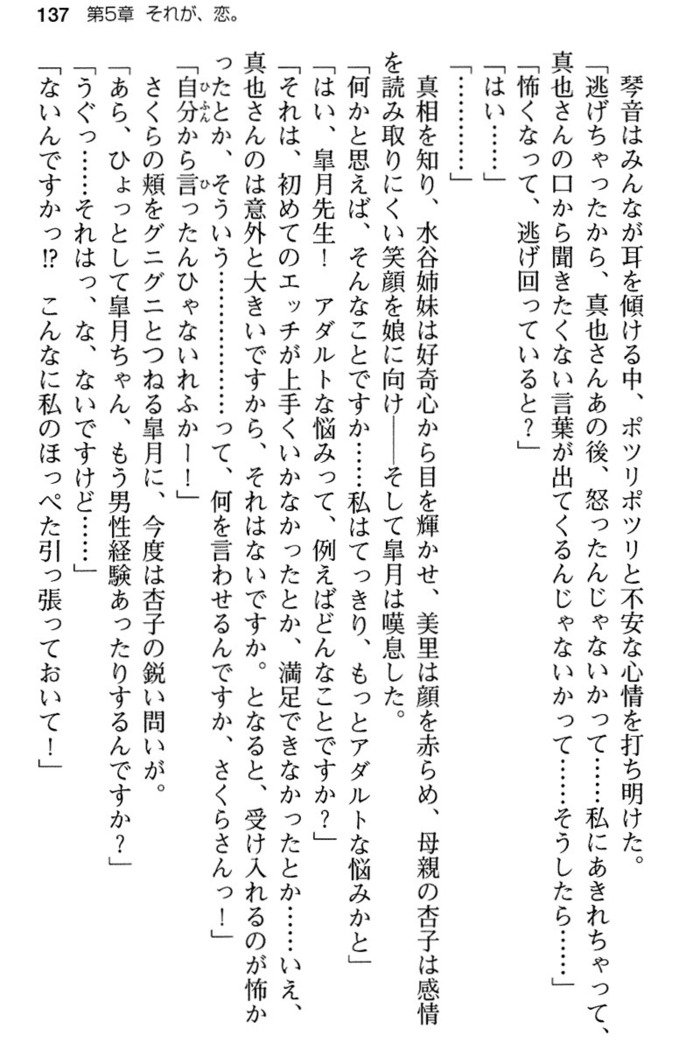 137 第5章 それが、恋。
琴音はみんなが耳を傾ける中、ポツリポツリと不安な心情を打ち明けた。
「逃げちゃったから、真也さんあの後、怒ったんじゃないかって……私にあきれちゃって、
真也さんの口から聞きたくない言葉が出てくるんじゃないかって……そうしたら……」
「怖くなって、逃げ回っていると?」
「はい……」
「…………」
真相を知り、水谷姉妹は好奇心から目を輝かせ、美里は顔を赤らめ、母親の杏子は感情
を読み取りにくい笑顔を娘に向け――そして皐月は嘆息した。
「何かと思えば、そんなことですか……私はてっきり、もっとアダルトな悩みかと」
「はい、皐月先生! アダルトな悩みって、例えばどんなことですか?」
「それは、初めてのエッチが上手くいかなかったとか、満足できなかったとか……いえ、
真也さんのは意外と大きいですから、それはないですか。となると、受け入れるのが怖か
ったとか、そういう………………って、何を言わせるんですか、さくらさんっ!」
「自分から言ったんひゃないれふかー!」
ひふん ひ
さくらの頬をグニグニとつねる皐月に、今度は杏子の鋭い問いが。
「あら、ひょっとして皐月ちゃん、もう男性経験あったりするんですか?」
「うぐっ……それはっ、な、ないですけど……」
「ないんですかっ!? こんなに私のほっぺた引っ張っておいて!」